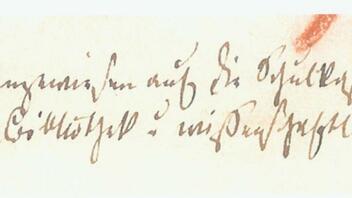 angewiesen auf die Schulka
Bibliothek u wissenschaftl